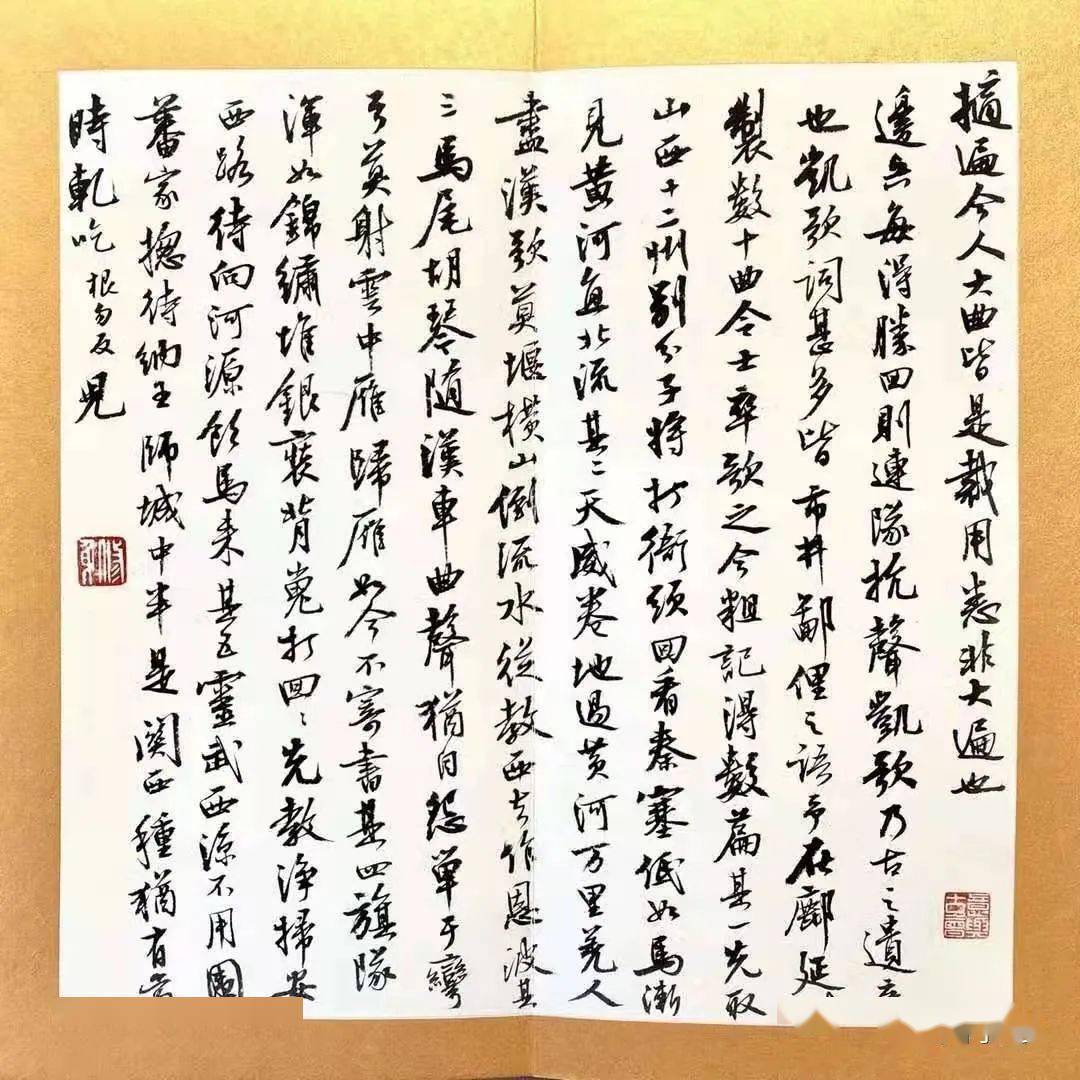 遍今人大曲皆是裁用悉非大遍也
邊兵每得勝回則連隊抗聲凱歌乃古之遺音
也凱歌詞甚多皆市井鄙俚之語予在鄜延
製數十曲令士卒歌之今粗記得數篇其一先取
山西十二州別分子將打衙頭回看秦塞低如馬漸
見黃河直北流其二天威卷地過黃河万里羌人
盡漢歌莫堰橫山倒流水從教西去作恩波其
三馬尾胡琴隨漢車曲聲猶自怨單于彎
弓莫射雲中雁歸雁如今不寄書其四旗隊
渾如錦繡堆銀裝背嵬打回〻先教淨掃安
西路待向河源飲馬来其五靈武西涼不用圍
蕃家總待納王師城中半是関西種猶有當
時軋吃根勿反兒
意與古會